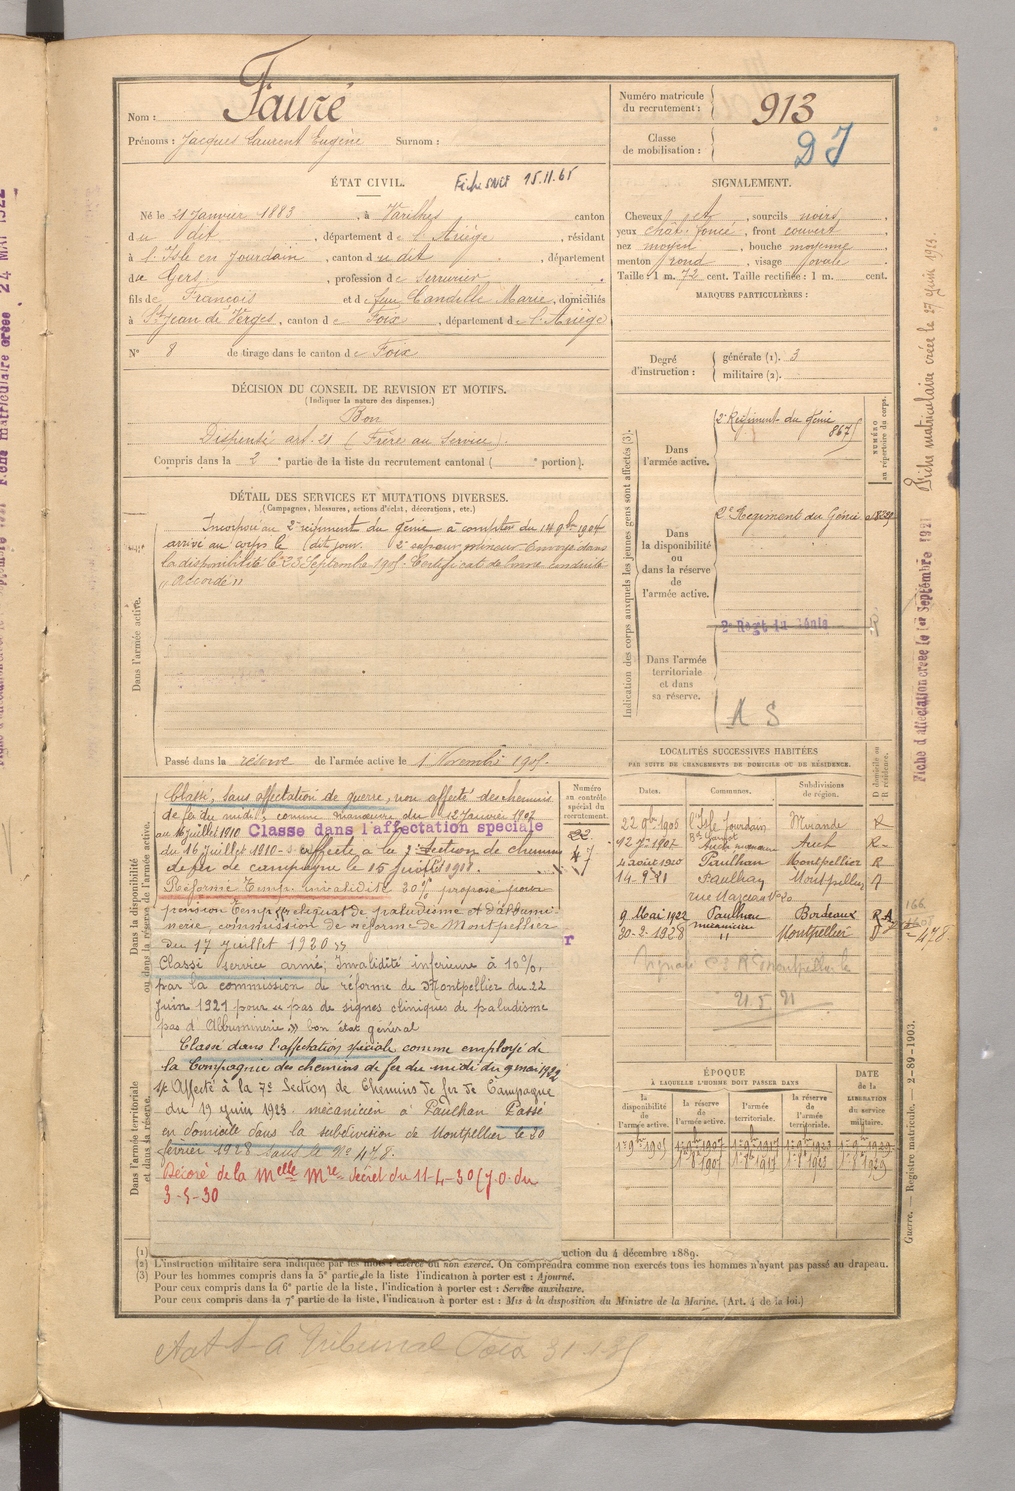 Nom : Fauré
Prénoms : Jacques Laurent Eugène Surnom :
Numéro matricule du recrutement : 913
Classe de mobilisation :
ÉTAT CIVIL.
Fiche SNCF 15.11.65
Né le 21 Janvier 1883, à Varilhes canton
du dit, département de l'Ariège, résidant
à l'Isle en Jourdain, canton du dit, département
du Gers, profession de Serrurier
fils de François et de feue Candelle Marie, domiciliés
à St Jean de Verges, canton de Foix, département de l'Ariège
N° 8 de tirage dans le canton de Foix
SIGNALEMENT.
Cheveux et sourcils noirs,
yeux chât. foncé, front couvert
nez moyen, bouche moyenne
menton rond, visage ovale
Taille : 1 m. 72 cent. Taille rectifiée : 1 m. cent.
MARQUES PARTICULIÈRES :
Degré d'instruction : générale (1). 3
militaire (2).
DÉCISION DU CONSEIL DE REVISION ET MOTIFS.
(Indiquer la nature des dispenses.)
Bon
Dispensé art. 21 (Frère au Service).
Compris dans la 2e partie de la liste du recrutement cantonal ( e portion).
DÉTAIL DES SERVICES ET MUTATIONS DIVERSES.
(Campagnes, blessures, actions d'éclat, décorations, etc.)
Dans l'armée active.
Incorporé au 2e régiment du génie à compter du 14 9bre 1904
arrivé au corps le dit jour. 2e sapeur mineur. Envoyé dans
la disponibilité le 23 Septembre 1905. Certificat de bonne conduite
"accordé"
Passé dans la réserve de l'armée active le 1 Novembre 190
Indication des corps auxquels les jeunes gens sont affectés (3).
NUMÉRO au répertoire du corps.
Dans l'armée active.
2e Régiment du génie
867
Dans la disponibilité ou dans la réserve de l'armée active.
2e Régiment du Génie
2e Regt du Génie
Dans l'armée territoriale et dans sa réserve.
A S
Dans la disponibilité ou dans la réserve de l'armée active.
Classé, sans affectation de guerre, non affecté des chemins
de fer du midi, comme manœuvre du 12 Janvier 1907
au 16 juillet 1910 Classe dans l'affectation speciale
du 16 juillet 1910 affecté à la section de chemins
de fer de campagne le 15 Juillet
Réformé Temp. invalidité 20% proposé pour
pension Temp. reliquat de paludisme et d'albumi-
nerie, commission de réforme de Montpellier
du 17 Juillet 1920
Classé service armé; Invalidité inférieure à 10%,
par la commission de réforme de Montpellier du 22
Juin 1921 pour "pas de signes cliniques de paludisme
pas d'Albuminerie" bon état général
Classé dans l'affectation spéciale comme employé de
la Compagnie des chemins de fer du midi du 9 mai 1922
Affecté à la 7e Section de Chemins de fer de Campagne
du 19 juin 1923. mécanicien à Paulhan Passé
en domicile dans la subdivision de Montpellier le 20
février 1928 sous le N° 478.
Décoré de la Melle Mre décret du 11-4-30 (J.O. du
3-5-30
Numéro au contrôle spécial du recrutement.
22
47
Dans l'armée territoriale et dans sa réserve.
LOCALITÉS SUCCESSIVES HABITÉES
PAR SUITE DE CHANGEMENTS DE DOMICILE OU DE RÉSIDENCE.
Dates. Communes. Subdivisions de région. D domicile ou R résidence.
22 9bre 1905 l'Isle Jourdain Mirande R
12 1907 Auch R
4 août 1920 Paulhan Montpellier R
Paulhan Montpellier
9 Mai 1922 Paulhan Bordeaux R
30-2-1928 mécanicien " Montpellier D
478
ÉPOQUE
À LAQUELLE L'HOMME DOIT PASSER DANS
la disponibilité de l'armée active. la réserve de l'armée active. l'armée territoriale. la réserve de l'armée territoriale. DATE de la LIBÉRATION du service militaire.
Fiche matriculaire créée le 27 juin 1923.
Fiche d'affectation créée le 1er Septembre 1921
Guerre. — Registre matricule. — 2-89-1903.
(1) uction du 4 décembre 1889.
(2) L'instruction militaire sera indiquée par les mots : exercé ou non exercé. On comprendra comme non exercés tous les hommes n'ayant pas passé au drapeau.
(3) Pour les hommes compris dans la 5e partie de la liste l'indication à porter est : Ajourné.
Pour ceux compris dans la 6e partie de la liste, l'indication à porter est : Service auxiliaire.
Pour ceux compris dans la 7e partie de la liste, l'indication à porter est : Mis à la disposition du Ministre de la Marine. (Art. 4 de la loi.)
Tribunal Foix